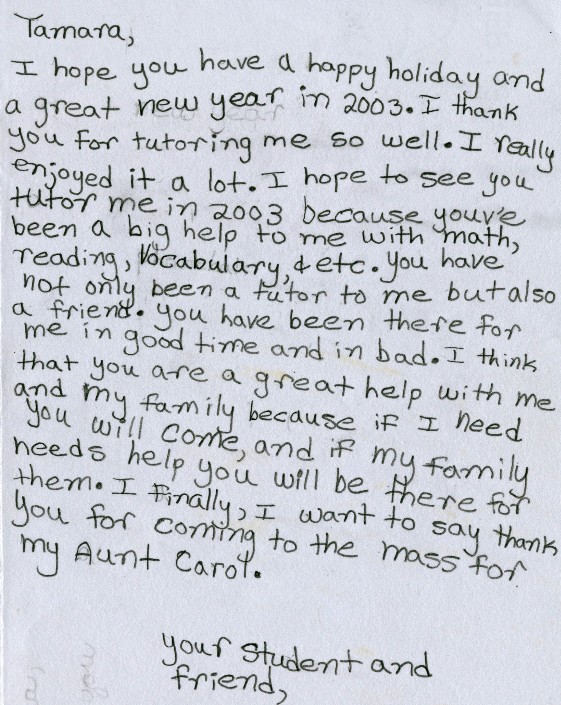 Tamara,
I hope you have a happy holiday and
a great new year in 2003. I thank
you for tutoring me so well. I really
enjoyed it a lot. I hope to see you
tutor me in 2003 because youv'e
been a big help to me with math,
reading, vocabulary, & etc. you have
not only been a tutor to me but also
a friend. you have been there for
me in good time and in bad. I think
that you are a great help with me
and my family because if I need
you will come, and if my family
needs help you will be there for
them. I Finally, I want to say thank
you for coming to the mass for
my Aunt Carol.
your student and
friend,